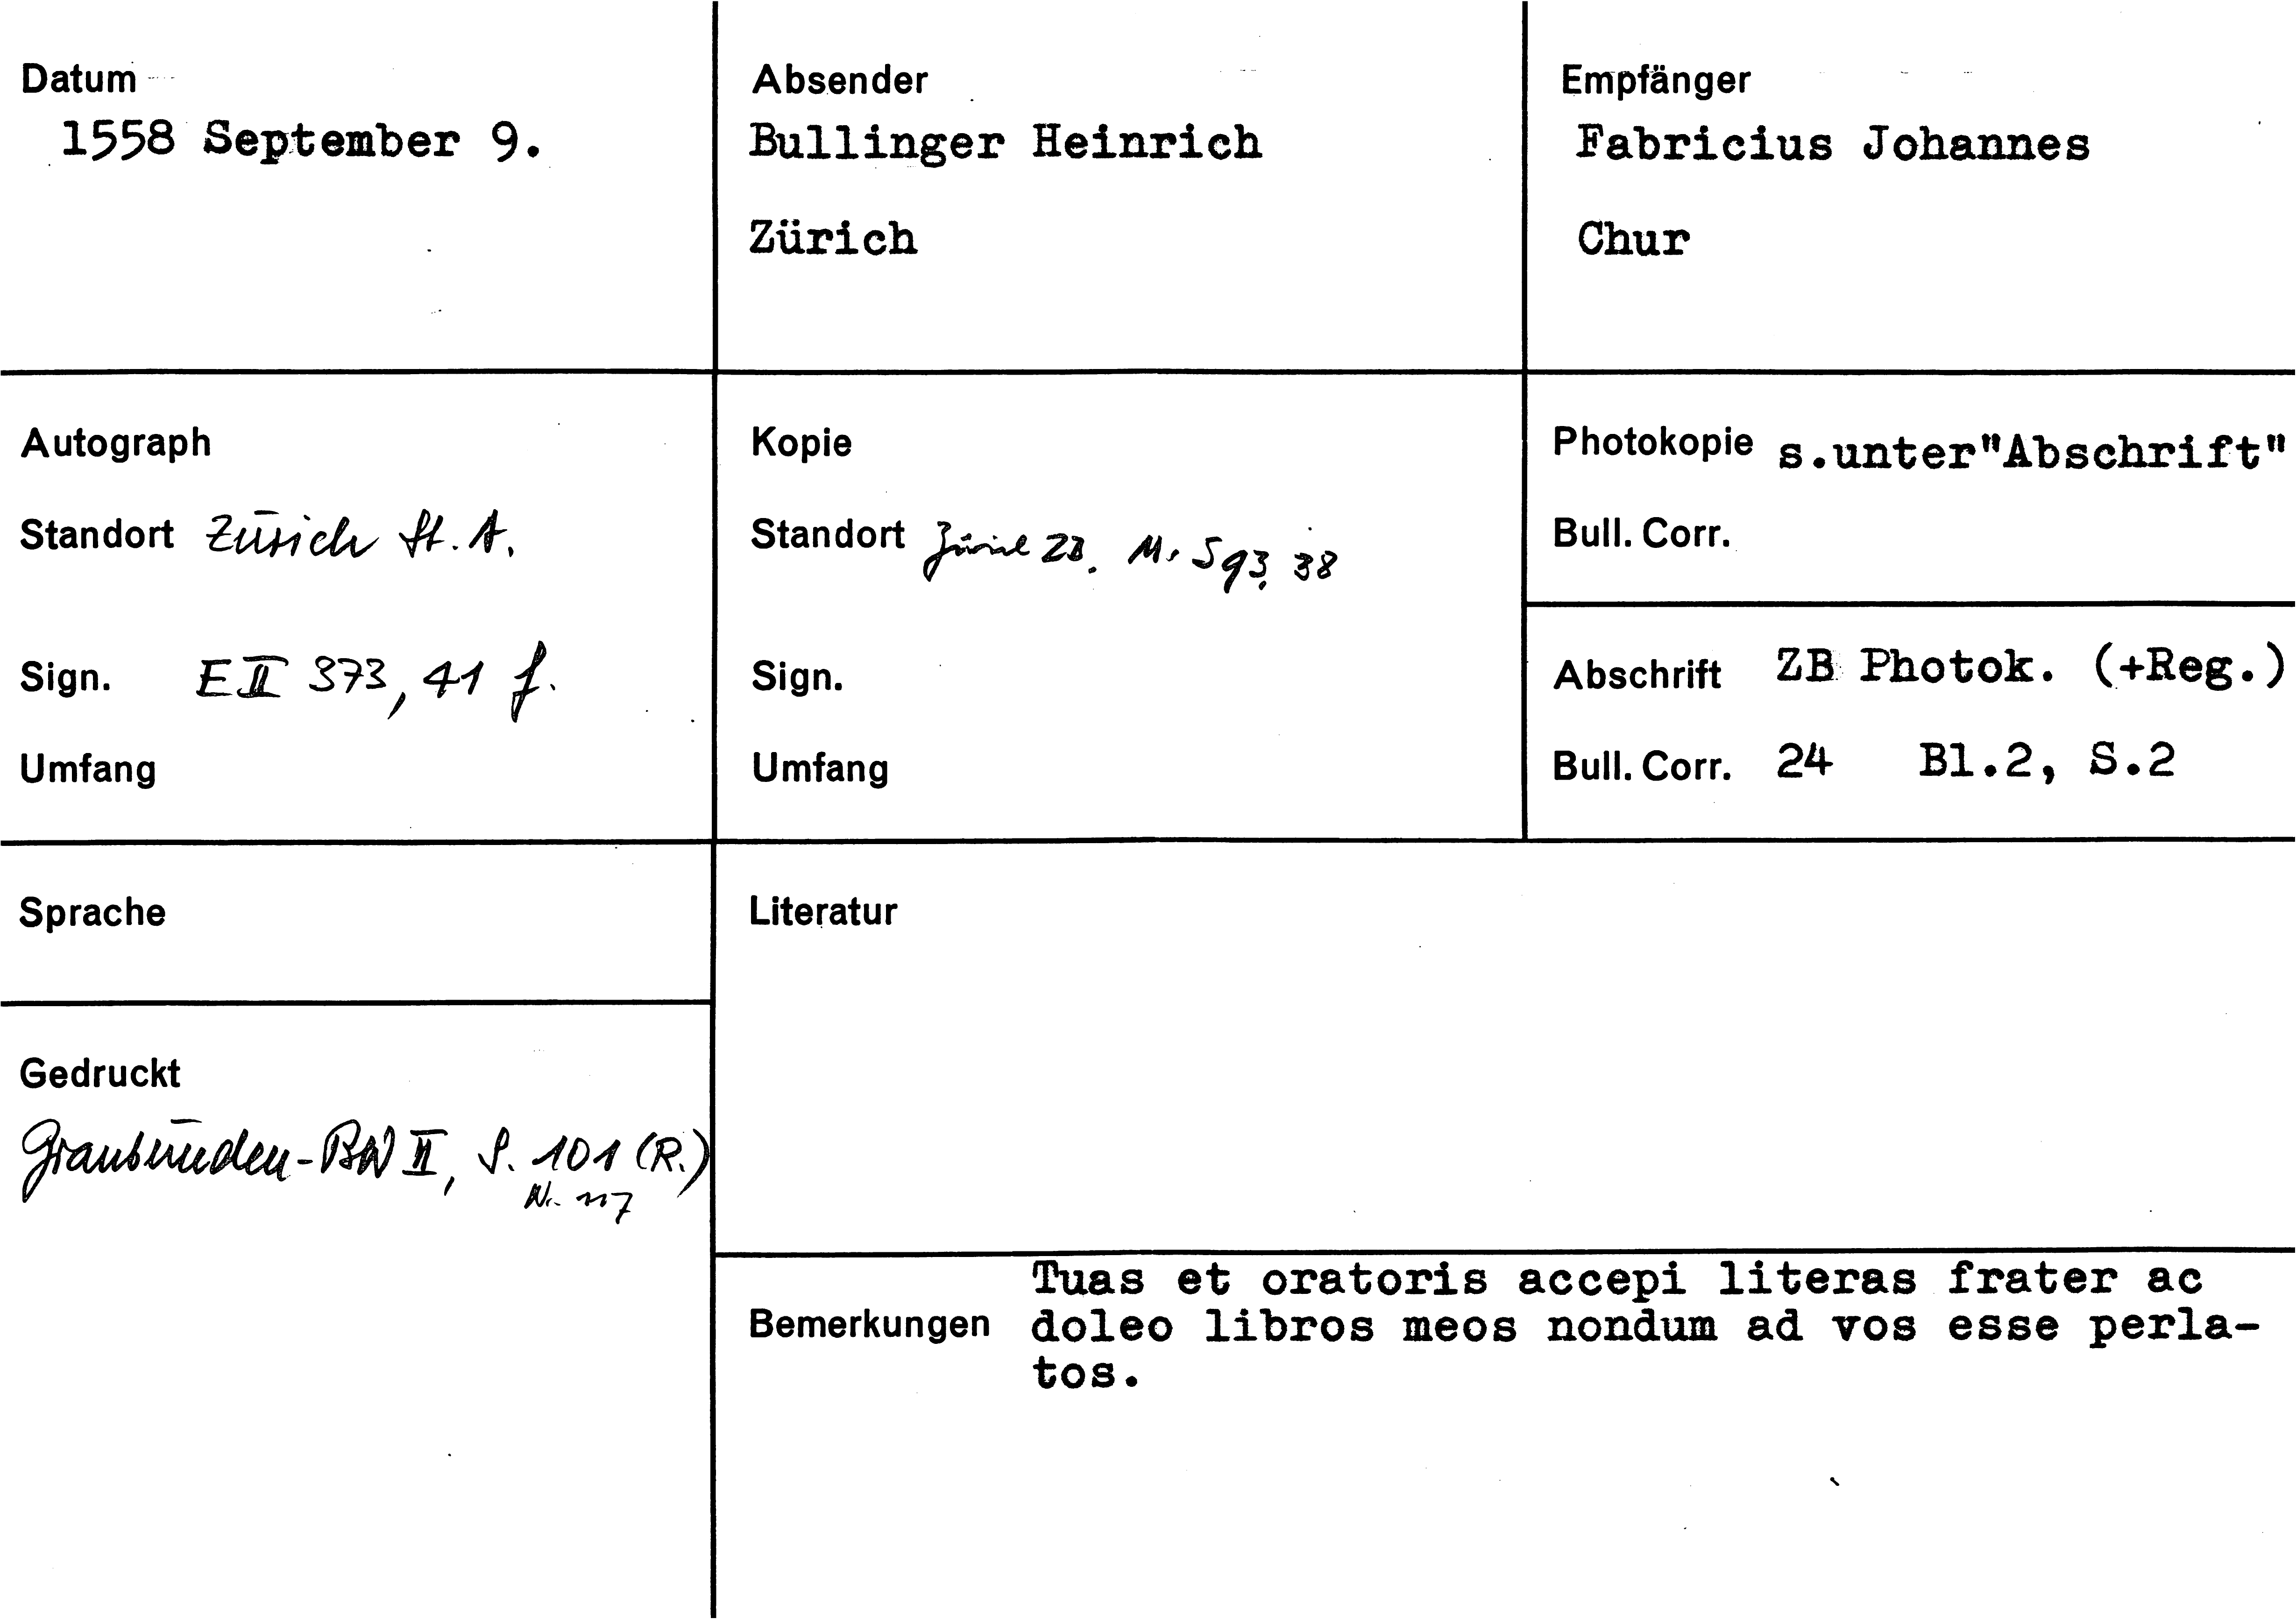 Datum
1558 September 9.
Absender
Bullinger Heinrich
Zürich
Empfänger
Fabricius Johannes
Chur
Autograph
Standort Zürich St. A.
Sign. E II 373, 41 f.
Umfang
Kopie
Standort Zürich ZB. Ms S 93, 38
Sign.
Umfang
Photokopie s.unter"Abschrift"
Bull. Corr.
Abschrift ZB Photok. (+Reg.)
Bull. Corr. 24 Bl.2, S.2
Sprache
Gedruckt
Graubünden-BW II, S. 101 (R.)
Nr. 117
Literatur
Bemerkungen
Tuas et oratoris accepi literas frater ac
doleo libros meos nondum ad vos esse perla-
tos.